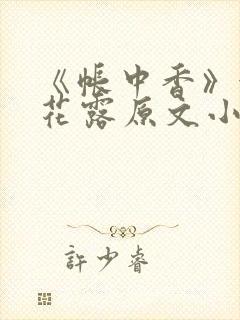 《帳中香》
花露原文小
許少睿